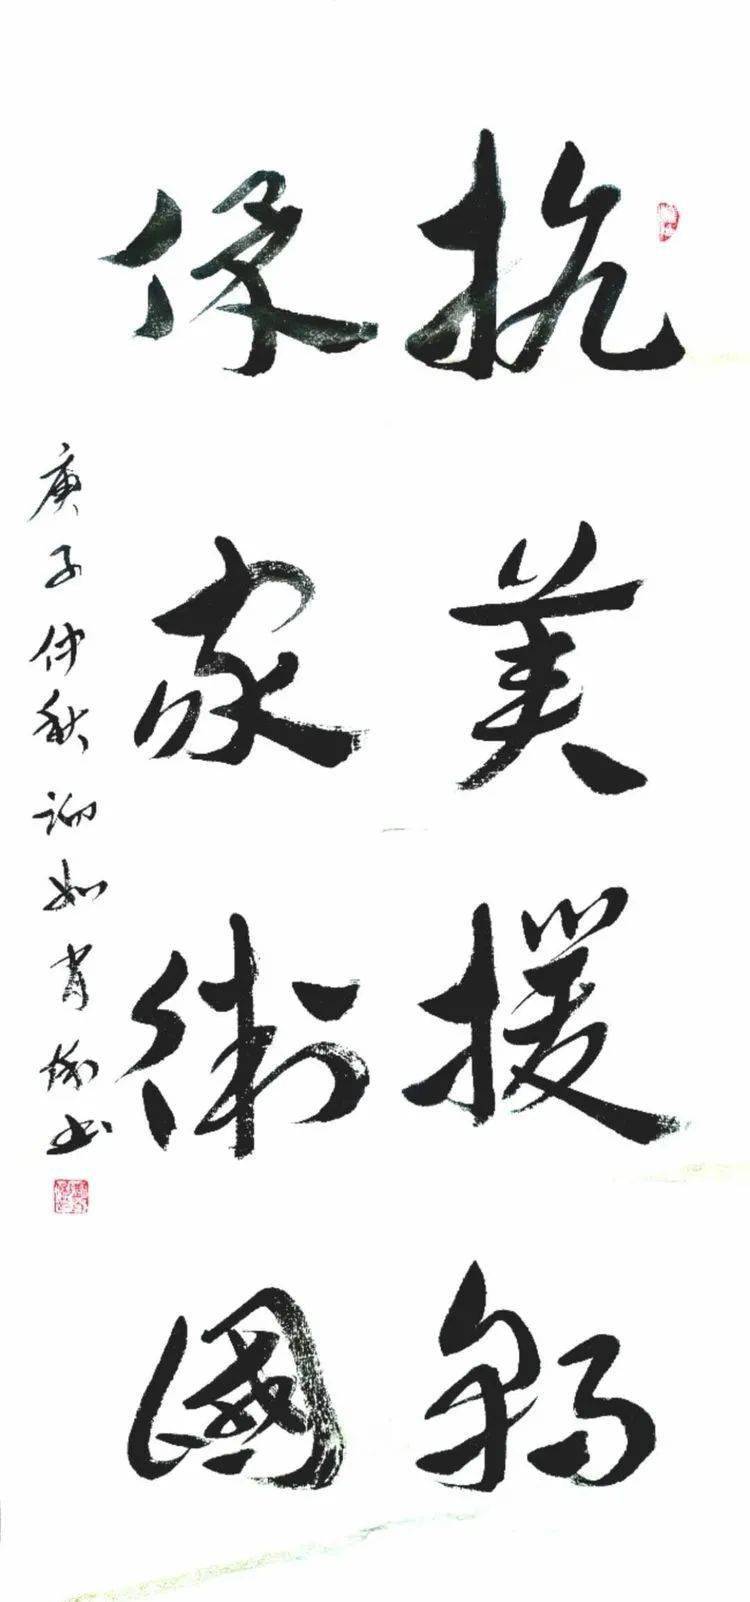 抗美援朝
保家衛國
庚子仲秋 如肖 书